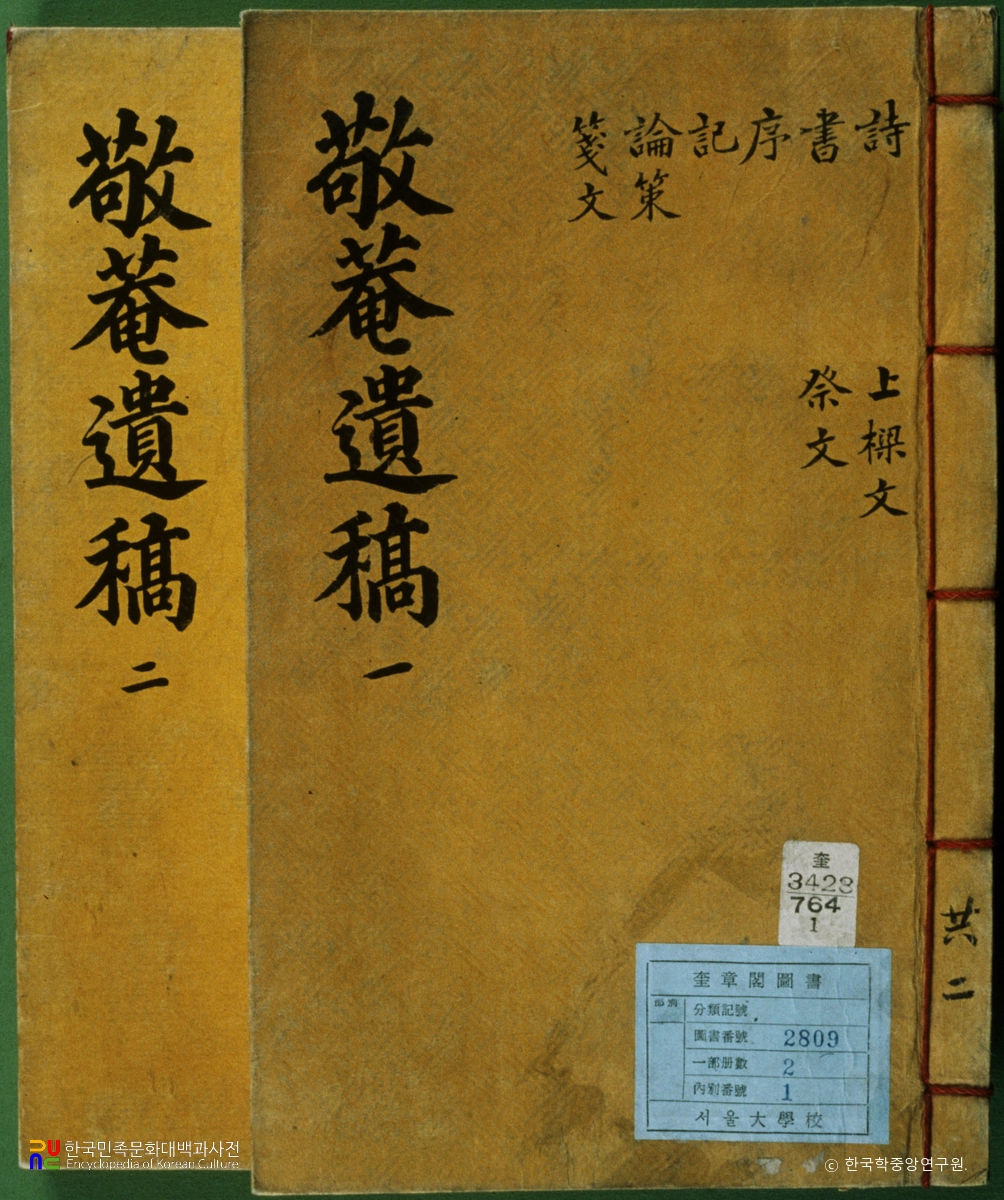 敬菴遺稿 二
敬菴遺稿 一
詩
書
序
記
論策
箋文
上樑文
祭文
共二
奎
3428
764
1
奎章閣圖書
部別
分類記號
圖書番號 2809
一部册數 2
內別番號 1
서울大學校
한국민족문화대백과사전
Encyclopedia of Korean Culture
© 한국학중앙연구원.